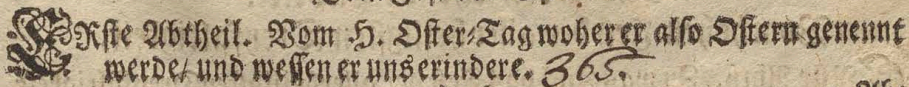 ERste Abtheil. Vom H. Oster-Tag woher er also Ostern genennt
werde/ und wessen er uns erindere. 365.